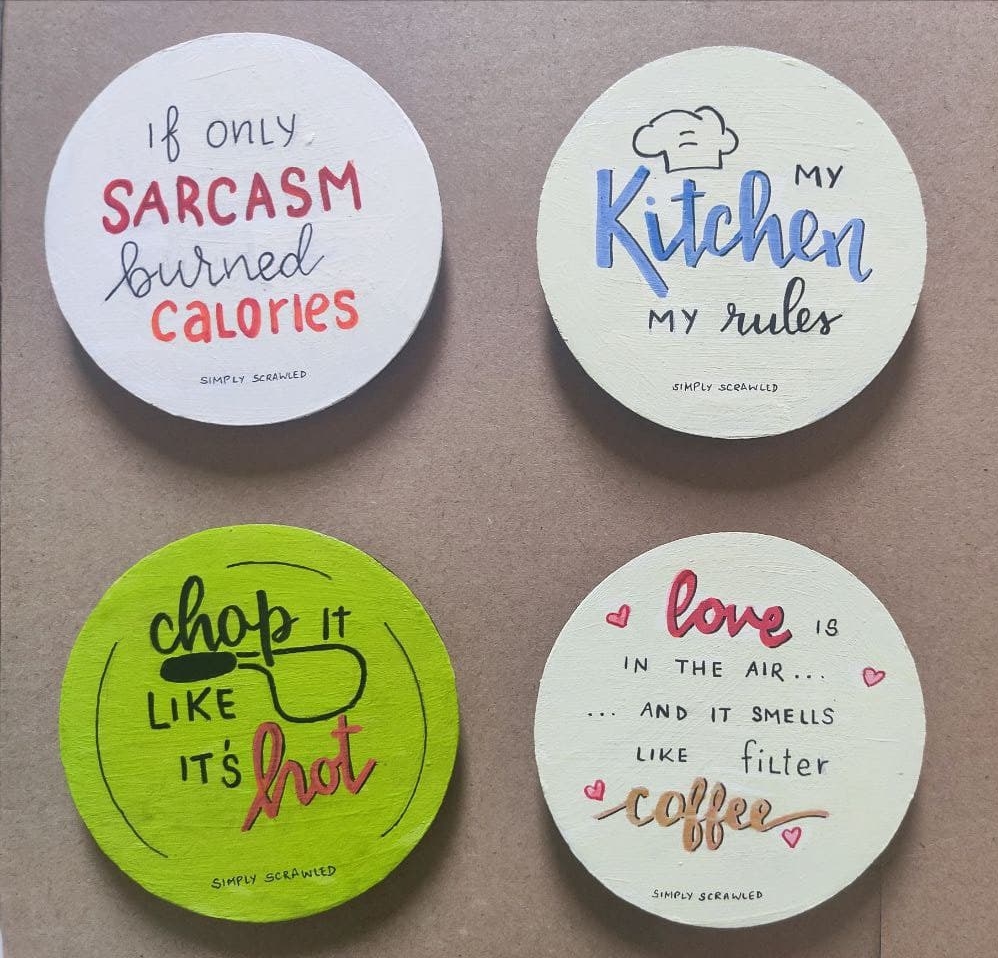 If only
SARCASM
burned
CALORIES
SIMPLY SCRAWLED
MY
Kitchen
MY rules
SIMPLY SCRAWLED
chop IT
LIKE
IT'S hot
SIMPLY SCRAWLED
love IS
IN THE AIR...
... AND IT SMELLS
LIKE filter
coffee
SIMPLY SCRAWLED